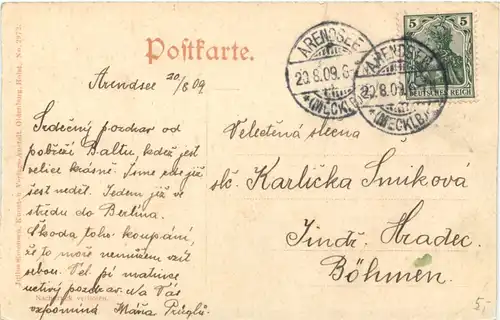 Postkarte.
ARENDSEE
20.8.09.6-
*(MECKLB)*
ARENDSEE
20.8.09.6
*(MECKLB)*
5 5
DEUTSCHES REICH
Arendsee 20/8 09
Srdečný pozdrav od
pobřeží Baltu kdež jest
velice krásně. Jsme zde již
jest neděl. Jedem již v
středu do Berlina.
Škoda toho koupání,
že to moře nemůžem vzít
sebou. Vel. pí matince
uctivý pozdrav. Na Vás
vzpomíná Máňa
Velectěná slečna
slč. Karlička Smiková
Jindř. Hradec.
Böhmen.
Nachdruck verboten.
5,-